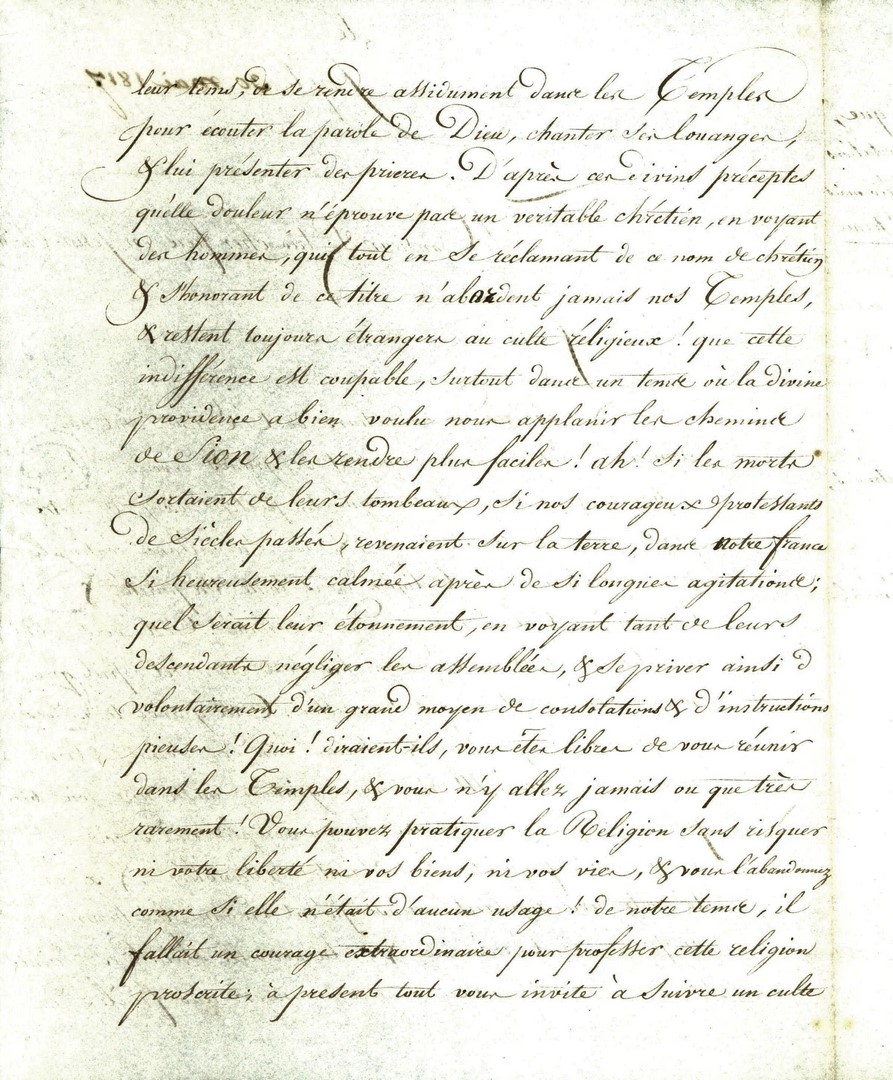 leur tems, de se rendre assidument dans les Temples
pour écouter la parole de Dieu, chanter ses louanges,
& lui présenter des prieres. D'après ces divins préceptes
quélle douleur n'éprouve pas un veritable chrétien, en voyant
des hommes, qui tout en se réclamant de ce nom de chrétien
& s'honorant de ce titre n'abordent jamais nos Temples,
& restent toujours étrangers au culte réligieux! que cette
indifférence est coupable, surtout dans un tems où la divine
providence a bien voulu nous applanir les chemins
de Sion & les rendre plus faciles! ah! si les morts
sortaient de leurs tombeaux, si nos courageux protestants
de siècles passés, revenaient sur la terre, dans notre france
si heureusement calmée après de si longues agitations;
quel serait leur étonnement, en voyant tant de leurs
descendants négliger les assemblées, & se priver ainsi d
volontairement d'un grand moyen de consolations & d'instructions
pieuses! Quoi! diraient-ils, vous êtes libres de vous réunir
dans les Temples, & vous n'y allez jamais ou que très
rarement! Vous pouvez pratiquer la Religion sans risquer
ni votre liberté ni vos biens, ni vos vies, & vous l'abandonnez
comme si elle n'était d'aucun usage! de notre tems, il
fallait un courage extraordinaire pour professer cette religion
proscrite; à present tout vous invite à suivre un culte